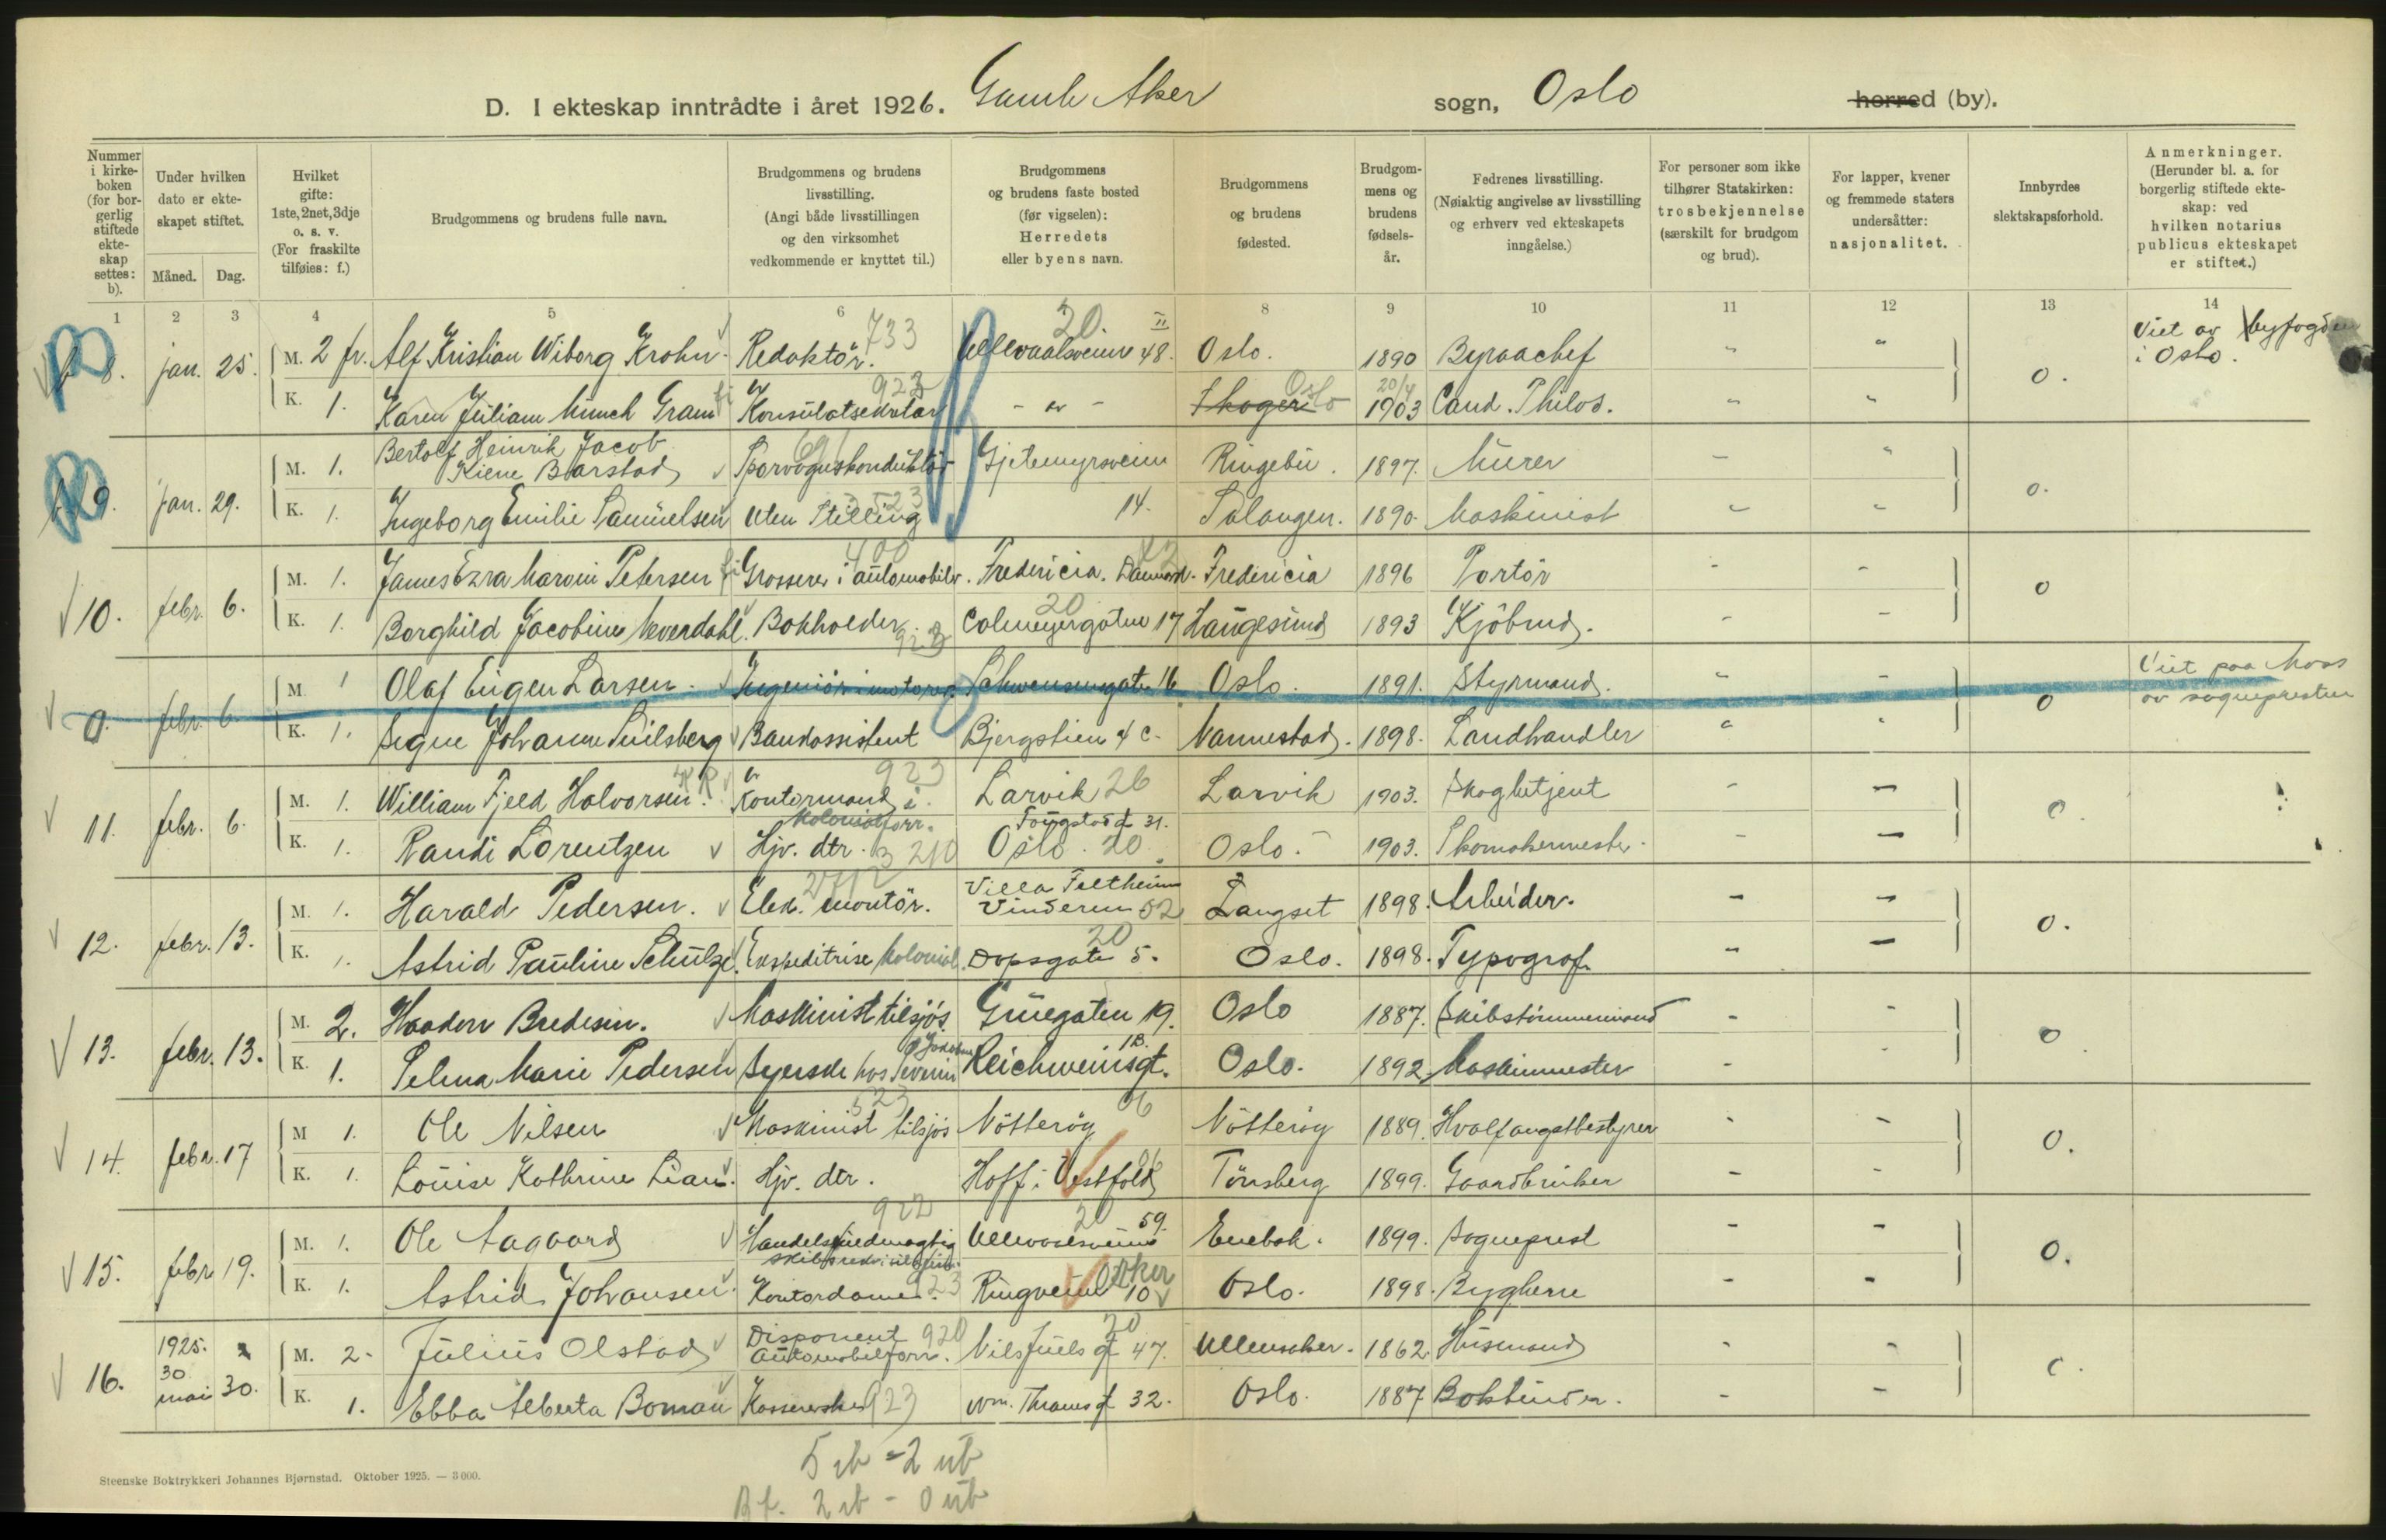 D. I ekteskap inntrådte i året 1926. Gamle Aker sogn, Oslo herred (by).
Nummer i kirkeboken (for borgerlig stiftede ekteskap settes: b).
Under hvilken dato er ekteskapet stiftet.
Måned. Dag.
Hvilket gifte: 1ste, 2net, 3dje o. s. v. (For fraskilte tilføies: f.)
Brudgommens og brudens fulle navn.
Brudgommens og brudens livsstilling. (Angi både livsstillingen og den virksomhet vedkommende er knyttet til.)
Brudgommens og brudens faste bosted (før vigselen): Herredets eller byens navn.
Brudgommens og brudens fødested.
Brudgommens og brudens fødselsår.
Fedrenes livsstilling. (Nøiaktig angivelse av livsstilling og erhverv ved ekteskapets inngåelse.)
For personer som ikke tilhører Statskirken: trosbekjennelse (særskilt for brudgom og brud).
For lapper, kvener og fremmede staters undersåtter: nasjonalitet.
Innbyrdes slektskapsforhold.
Anmerkninger. (Herunder bl. a. for borgerlig stiftede ekteskap: ved hvilken notarius publicus ekteskapet er stiftet.)
1 2 3 4 5 6 7 8 9 10 11 12 13 14
8. jan. 25. M. 2 fr. Alf Kristian Wiborg Krohn Redaktör. 733 Ullevaalsveien 48 II 20. Oslo. 1890 Byraachef " " 0. Viet av byfogden i Oslo.
K. 1. Karen Juliane Munch Gram Konsulatsekretær 923 - " - Skoger Oslo 20/4 1903 Cand. Philos. " "
9. jan. 29. M. 1. Bertolf Heinrik Jacob Kiene Barstad Sporvognskonduktör Gjetemyrsveien Ringebu. 1897. Murer - " 0.
K. 1. Ingeborg Emilie Samuelsen Uten Stilling 14. Salangen. 1890. Maskinist - -
10. febr. 6. M. 1. James Ezra Maroni Petersen Grosserer i automobiler. 400 Fredericia. Danmark. Fredericia 1896 Portör - - 0
K. 1. Borghild Jacobine Hverdahl. Bokholder 923 Colmeyergaten 17 20 Langesund 1893 Kjöbmd. - -
0. febr. 6. M. 1 Olaf Eugen Larsen. Ingeniör i motorer. Schwensensgate 16 Oslo. 1891. Styrmand. " - 0 Viet paa Moss av sognepresten
K. 1. Signe Johanne Smilsberg Bankassistent Bjergstien 4 c. Nannestad. 1898. Landhandler " "
11. febr. 6. M. 1. William Fjeld Halvorsen. Kontormand i kolonialforr. 923 Larvik 26 Larvik 1903. Skogbetjent - - 0.
K. 1. Randi Lorentzen Hjv. dtr. 3 210 Tougstad gt 31. Oslo. 20 Oslo. 1903. Skomakermester. - -
12. febr. 13. M. 1. Harald Pedersen. Elek. montör. Villa Feltheim Vinderen 52 Langset 1898. Arbeider. - - 0.
K. 1. Astrid Pauline Schulze. Ekspeditrise kolonial. Dopsgate 5. 20 Oslo. 1898. Typograf. - -
13. febr. 13. M. 2. Haadon Bredesen. Maskinist tilsjös. Grüegaten 19. Oslo 1887. Skibstömmermand - - 0
K. 1. Selma Marie Pedersen Syerske hos Severin Reichweinsgt. 1B. Oslo. 1892. Maskinmester - -
14. febr. 17 M 1. Ole Nilsen Maskinist tilsjös 523 Nötteröy 06 Nötteröy 1889. Hvalfangstbestyrer - - 0.
K. 1. Louise Kathrine Lian. Hjv. dtr. Hoff i Vestfold 06 Tönsberg 1899. Gaardbruker - -
15. febr 19. M. 1. Ole Aagaard Handelsfuldmægtig 922 Ullevaalsveien 59. 20 Enebak. 1899. Sogneprest - - 0.
K. 1. Astrid Johansen. Kontordame. 923 Ringveien 10 Aker Oslo. 1898. Bygherre - -
16. 1925. 30 mai 30. M. 2. Julius Olstad Disponent Automobilforr. 920 Nils Juels gt 47. 20 Ullensaker. 1862. Husmand - - 0.
K. 1. Ebba Alberta Boman Kassererske 923 Wm. Thranes gt 32. Oslo. 1887 Bokbinder. - -
5 ib = 2 ub
Bf. 2 ib - 0 ub
Steenske Boktrykkeri Johannes Bjørnstad. Oktober 1925. — 3 000.